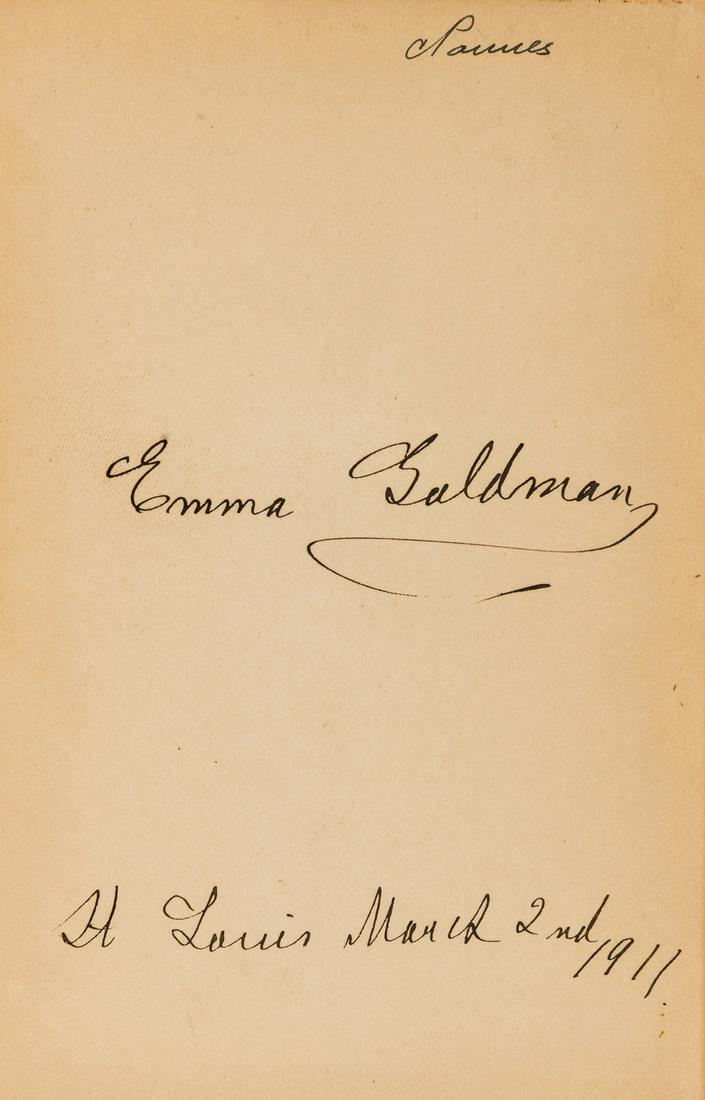 Emma Goldman
St Louis March 2nd 1911.